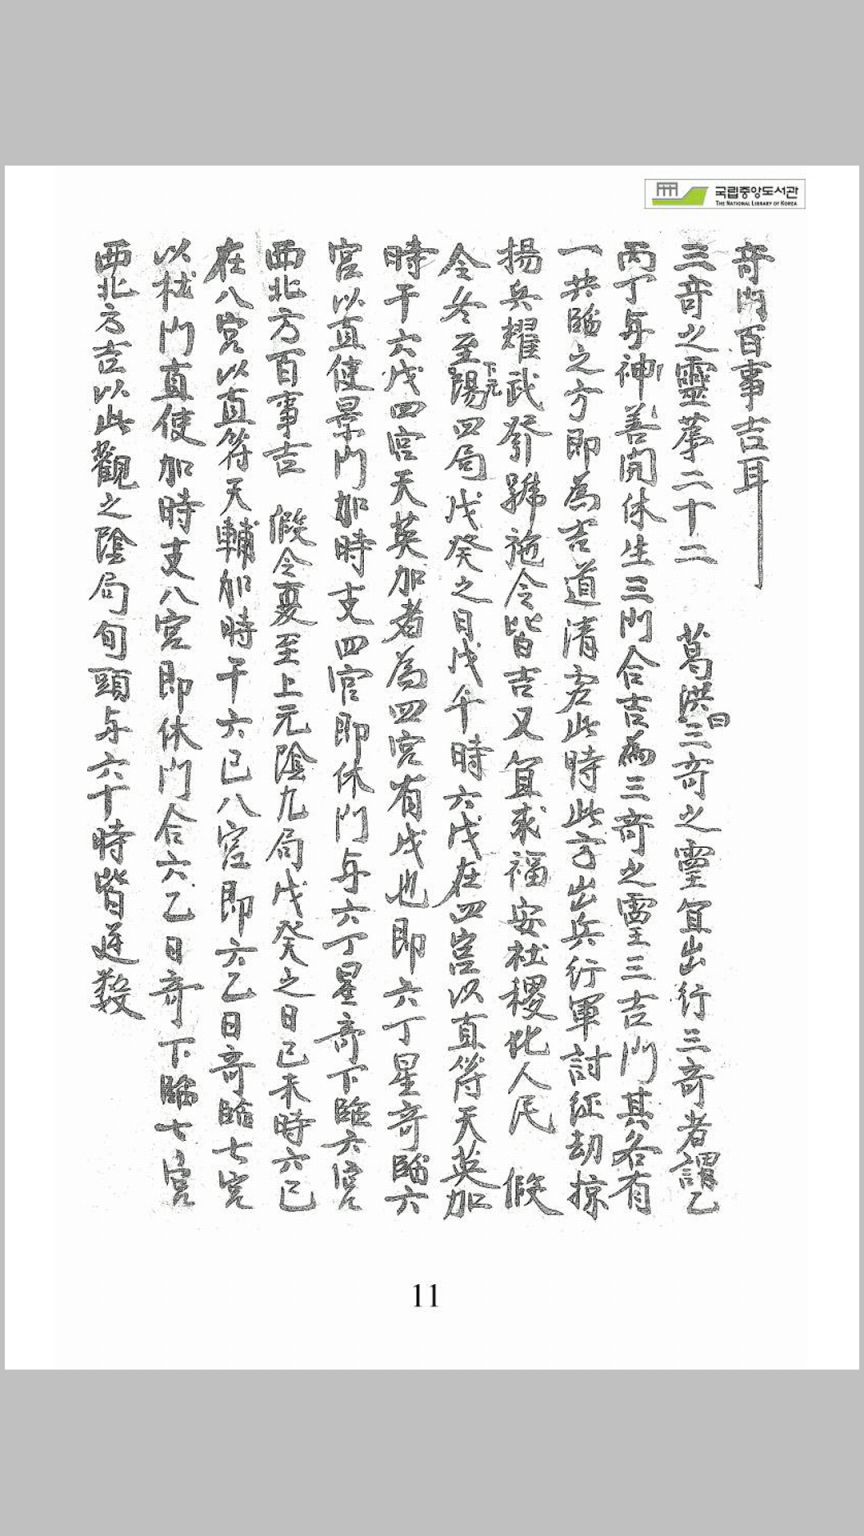 국립중앙도서관
THE NATIONAL LIBRARY OF KOREA
奇門百事吉耳
三奇之靈第二十二 葛洪曰三奇之靈宜出行三奇者謂乙
丙丁与神善開休生三門合吉為三奇之靈三吉門其各有
一共臨之方即為吉道清宏此時此方出兵行軍討征劫掠
揚兵耀武發號施令皆吉又宜求福安社稷化人民 假
令冬至陽下元四局戊癸之日戊午時六戊在四宮以直符天英加
時干六戊四宮天英加者為四宮有戊也即六丁星奇臨六
宮以直使景門加時支四宮即休門与六丁星奇下臨六宮
西北方百事吉 假令夏至上元陰九局戊癸之日己未時六己
在八宮以直符天輔加時干六己八宮即六乙日奇臨七宮
以杜門直使加時支八宮即休門合六乙日奇下臨七宮
西北方吉以此觀之陰局旬頭与六十時皆逆數
11